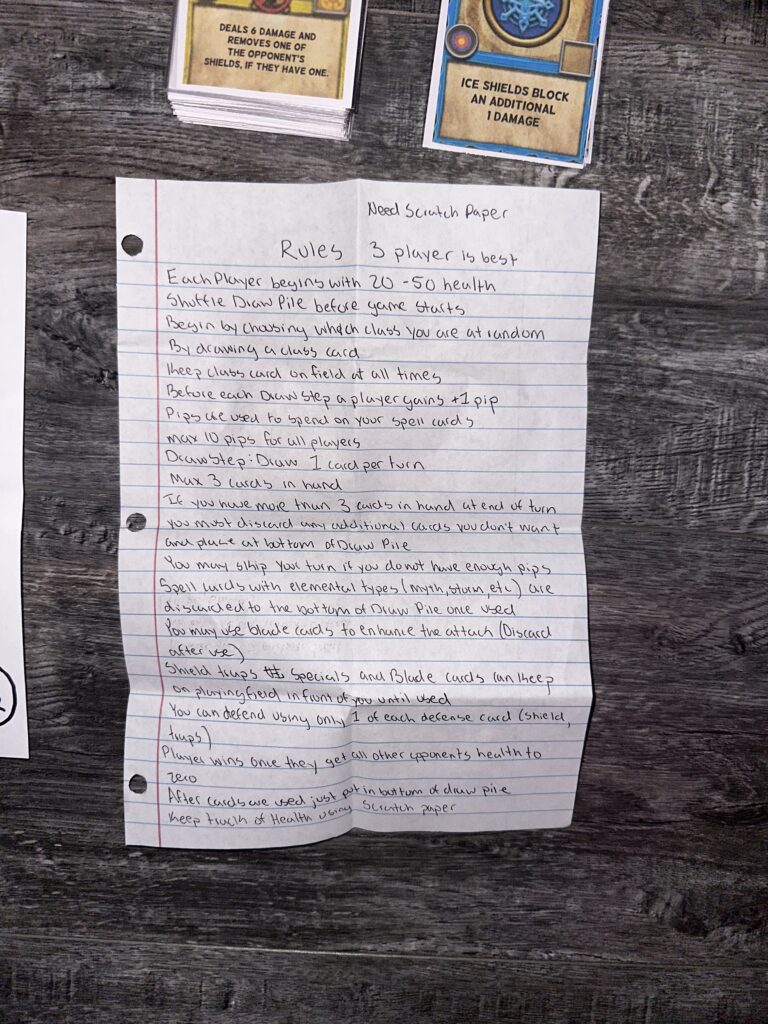 DEALS 6 DAMAGE AND
REMOVES ONE OF
THE OPPONENT'S
SHIELDS, IF THEY HAVE ONE.
ICE SHIELDS BLOCK
AN ADDITIONAL
1 DAMAGE
Need Scratch Paper
Rules 3 player is best
Each Player begins with 20-50 health
Shuffle Draw Pile before game starts
Begin by choosing which class you are at random
By drawing a class card
Keep class card on field at all times
Before each Draw step a player gains +1 pip
Pips are used to spend on your spell cards
max 10 pips for all players
Draw Step: Draw 1 card per turn
Max 3 cards in hand
If you have more than 3 cards in hand at end of turn
you must discard any additional cards you don't want
and place at bottom of Draw Pile
You may skip your turn if you do not have enough pips
Spell cards with elemental types (myth, storm, etc) are
discarded to the bottom of Draw Pile once used
You may use blade cards to enhance the attack (Discard
after use)
Shield traps Specials and Blade cards can keep
on playing field in front of you until used
You can defend using only 1 of each defense card (shield,
traps)
Player wins once they get all other opponents health to
zero
After cards are used just put in bottom of draw pile
Keep track of Health using scratch paper